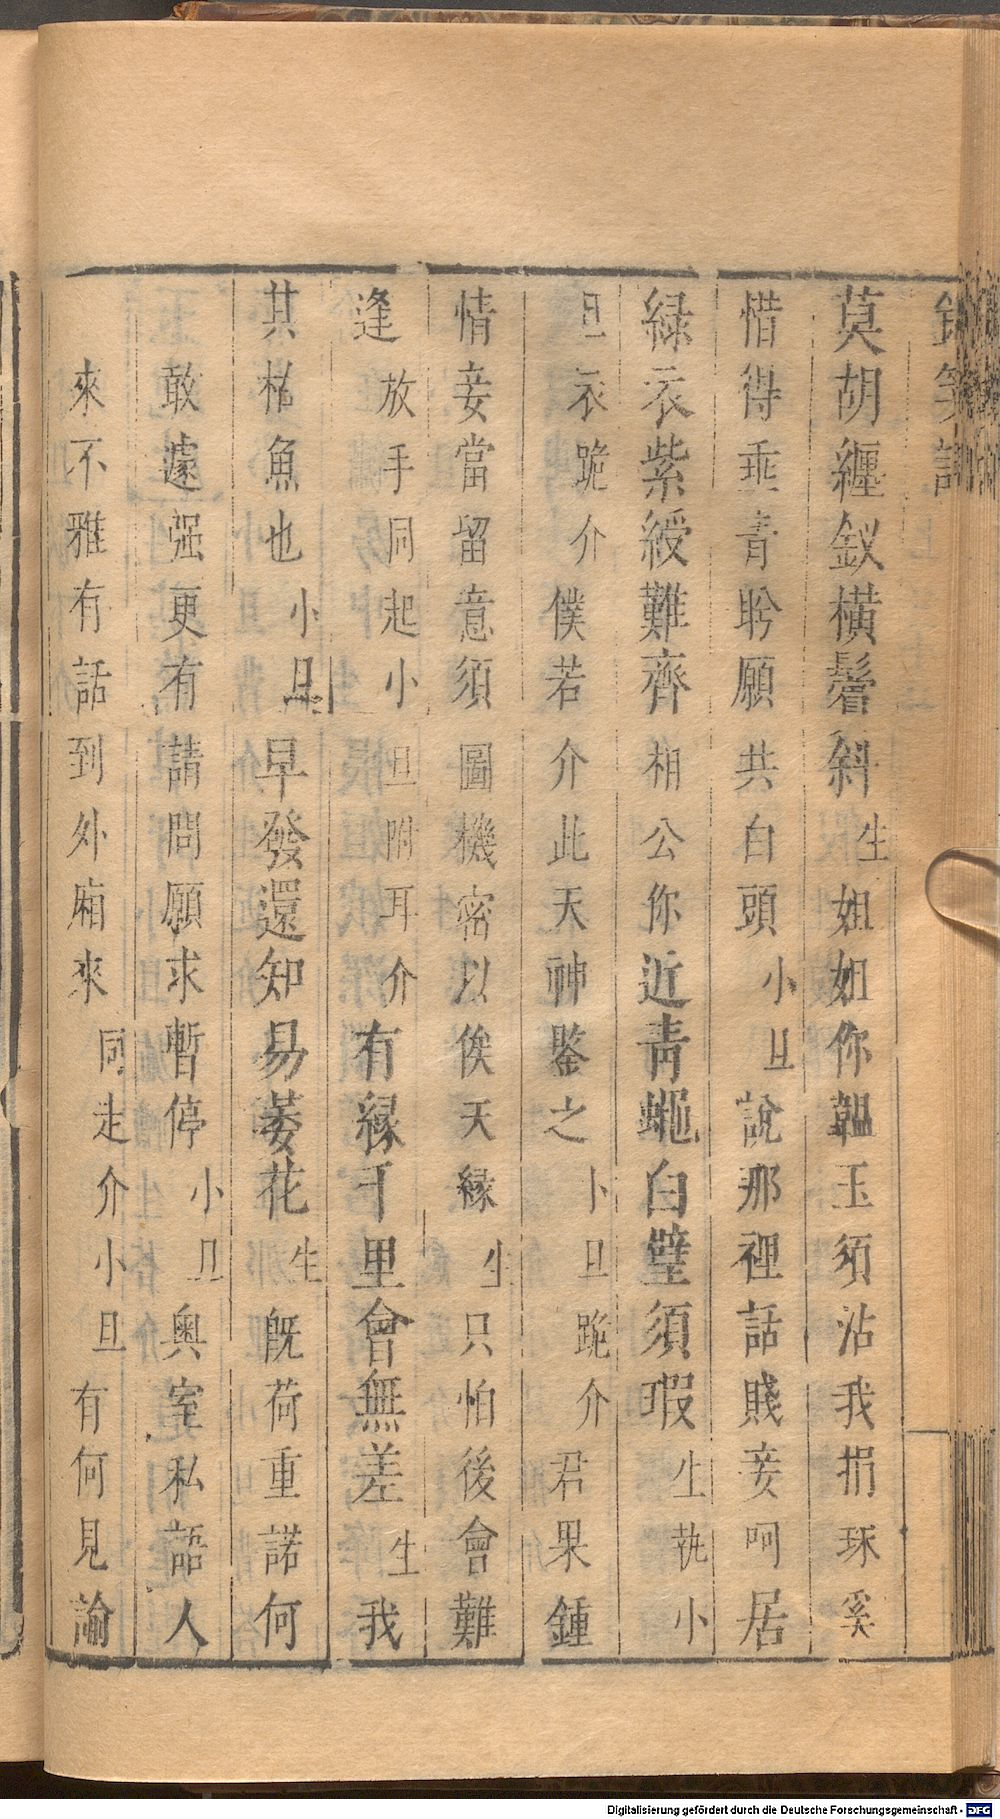 莫胡纏釵橫鬢斜生姐姐你韞玉須沾我捐珠奚
惜得垂青盻願共白頭小旦說那裡話賤妾呵居
緑衣紫綬難齊相公你近青蠅白璧須瑕生執小
旦衣跪介僕若介此天神鑒之小旦跪介君果鍾
情妾當留意須圖機密以俟天緣生只怕後會難
逢放手同起小旦附耳介有緣千里會無差生我
其枯魚也小旦早發還知易萎花生旣荷重諾何
敢遽强更有請問願求暫停小旦奥室私語人
來不雅有話到外廂來同走介小旦有何見諭
Digitalisierung gefördert durch die Deutsche Forschungsgemeinschaft - DFG